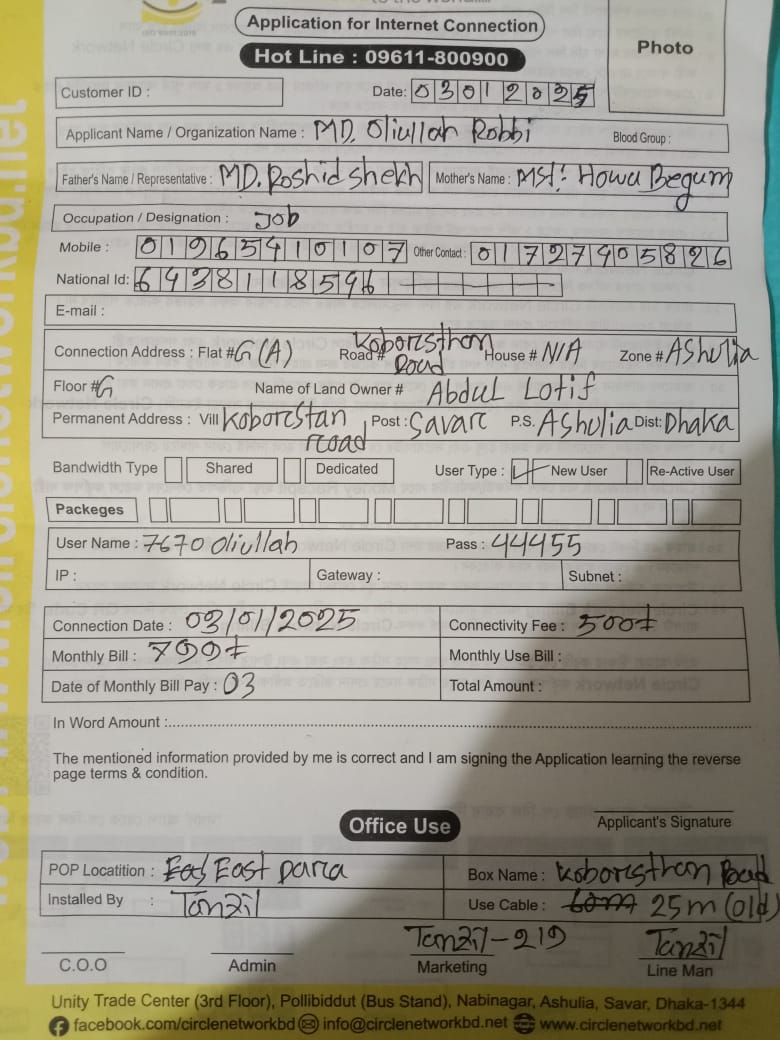 Application for Internet Connection
Hot Line : 09611-800900
Photo
Customer ID :
Date: 03012025
Applicant Name / Organization Name : MD. Oliullah Robbi Blood Group :
Father's Name / Representative : MD. Roshid Shekh Mother's Name : MSt: Howa Begum
Occupation / Designation : Job
Mobile : 01965410107 Other Contact : 01727405826
National Id: 6438118596
E-mail :
Connection Address : Flat # G (A) Road # Koboresthan Road House # N/A Zone # AShulia
Floor # G Name of Land Owner # Abdul Lotif
Permanent Address : Vill Koborestan road Post : Savar P.S. AShulia Dist: Dhaka
Bandwidth Type Shared Dedicated User Type : New User Re-Active User
Packeges
User Name : 7670 Oliullah Pass : 44455
IP : Gateway : Subnet :
Connection Date : 03/01/2025 Connectivity Fee : 500৳
Monthly Bill : 799৳ Monthly Use Bill :
Date of Monthly Bill Pay : 03 Total Amount :
In Word Amount :
The mentioned information provided by me is correct and I am signing the Application learning the reverse
page terms & condition.
Applicant's Signature
Office Use
POP Locatition : East para Box Name : Koboresthan Road
Installed By : Tanzil Use Cable : 25m (old)
Tanzil-219 Tanzil
C.O.O Admin Marketing Line Man
Unity Trade Center (3rd Floor), Pollibiddut (Bus Stand), Nabinagar, Ashulia, Savar, Dhaka-1344
facebook.com/circlenetworkbd info@circlenetworkbd.net www.circlenetworkbd.net